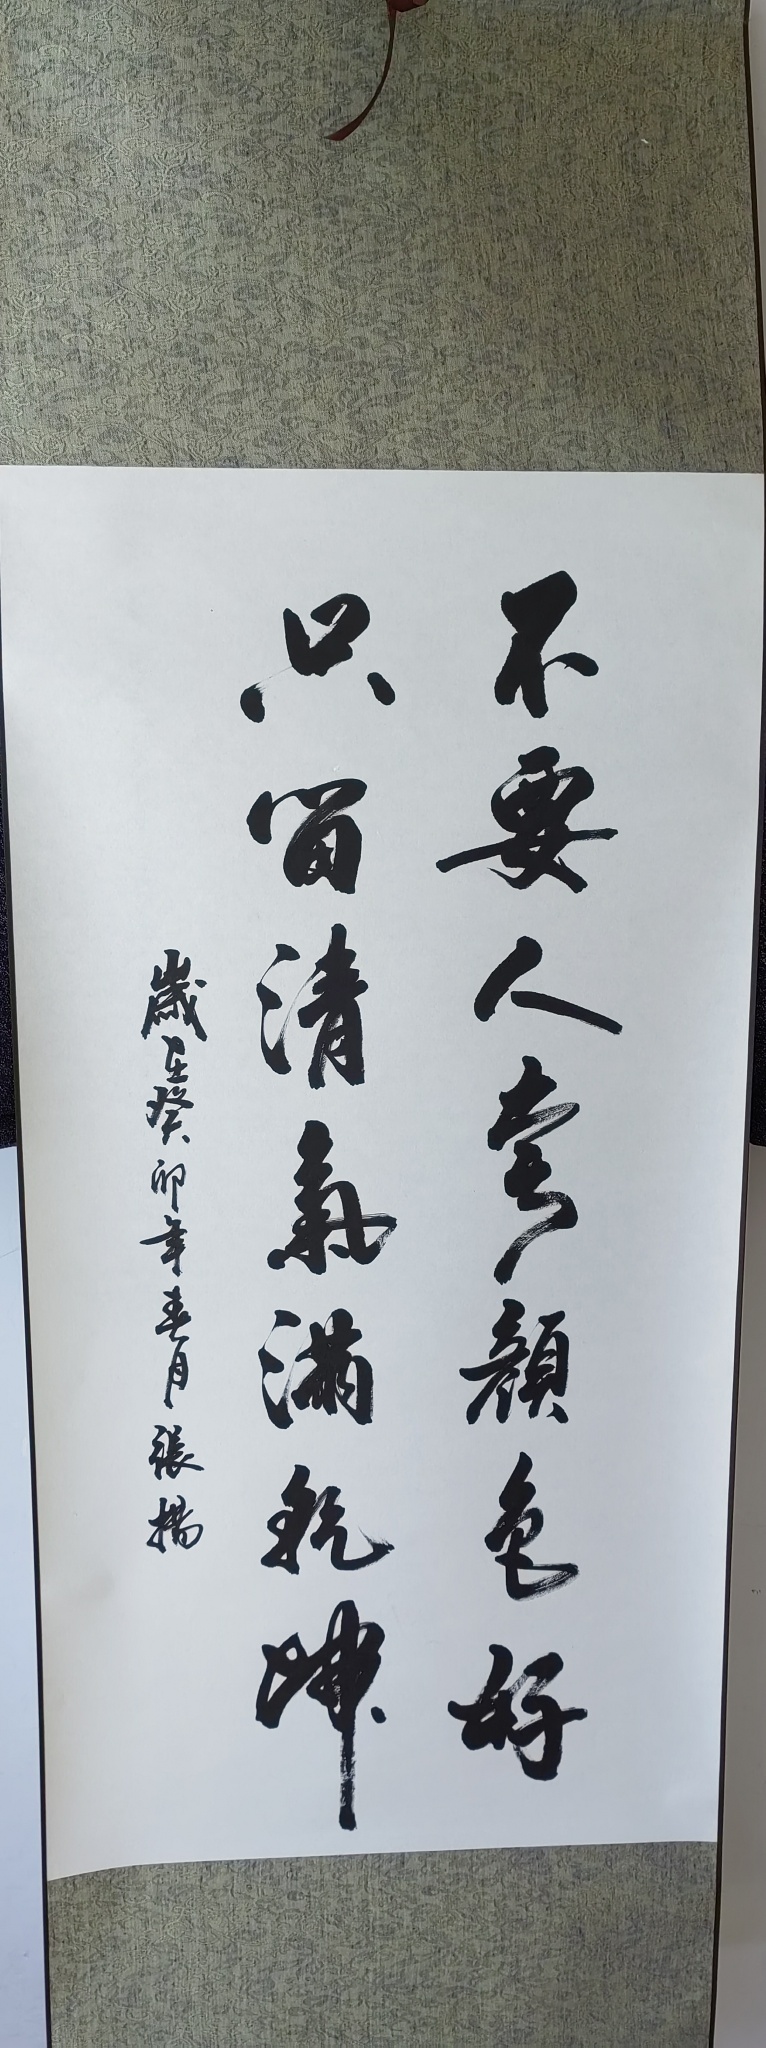 不要人夸顏色好
只留清氣滿乾坤
歲在癸卯年春月張揚